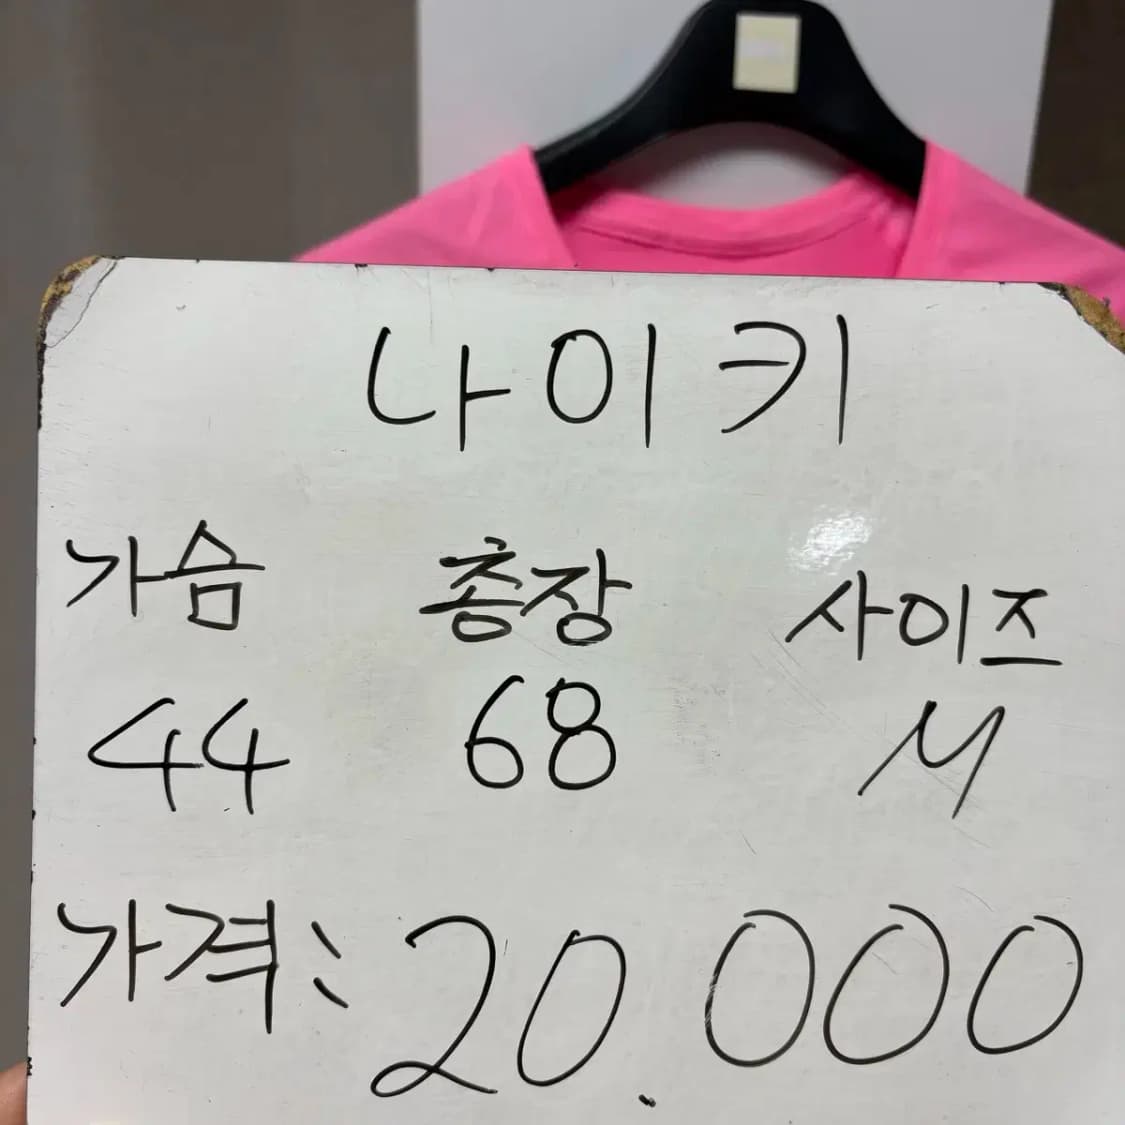 나이키
가슴 총장 사이즈
44 68 M
가격: 20.000